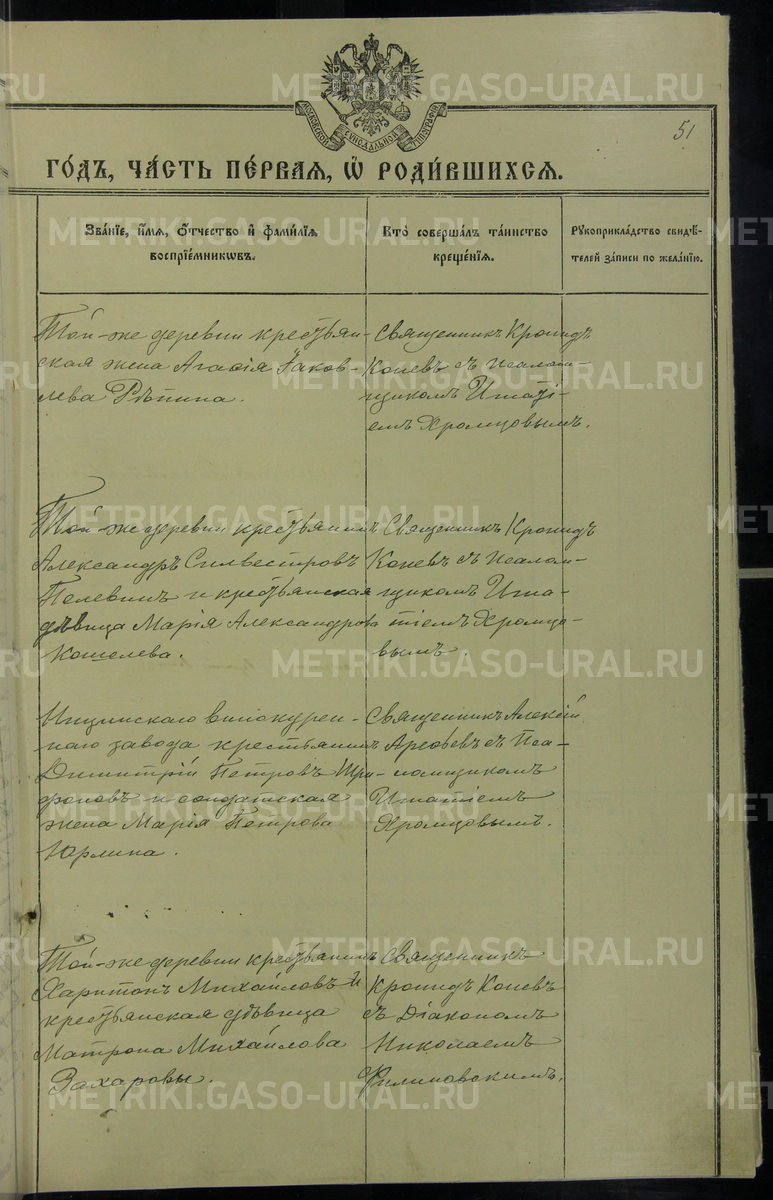 МОСКОВСКОЙ СѴНОДАЛЬНОЙ ТИПОГРАФІИ
51
ГО́ДЪ, ЧА́СТЬ ПЕ́РВАѦ, Ѡ҆ РОДИ́ВШИХСѦ.
Зва́нїе, и҆́мѧ, ѻ҆́тчество и҆ фами́лїѧ
воспрїе́мникѡвъ.
Кто̀ соверша́лъ та́инство
креще́нїѧ.
Рꙋкоприкла́дство свидѣ́-
телей за́писи по жела́нїю.
Той-же деревни крестьян-
ская жена Агасія Іаков-
лева Рѣпина.
Священникъ Кронидъ
Коневъ съ псалом-
щикомъ Игнаті-
емъ Хромцовымъ.
Той-же деревни крестьянинъ
Александръ Сильвестровъ
Пелевинъ и крестьянская
дѣвица Марія Александрова
Кошелева.
Священникъ Кронидъ
Коневъ съ псалом-
щикомъ Игна-
тіемъ Хромцо-
вымъ.
винокурен-
наго завода крестьянинъ
Димитрій Петровъ Три-
фоновъ и солдатская
жена Марія Петрова
Юрлина.
Священникъ Алексій
Арефьевъ съ Пса-
ломщикомъ
Игнатіемъ
Хромцовымъ.
Той-же деревни крестьянинъ
Харитонъ Михайловъ и
крестьянская дѣвица
Матрона Михайлова
Захаровы.
Священникъ
Кронидъ Коневъ
съ Діакономъ
Николаемъ
Филиповскимъ.
METRIKI.GASO-URAL.RU